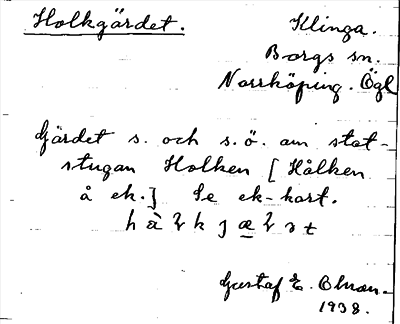 Holkgärdet. Klinga.
Borgs sn.
Norrköping. Ögl
Gärdet s. och s.ö. om stat-
stugan Holken [Hålken
å ek.] Se ek-kart.
Gustaf E. Ohman
1938.